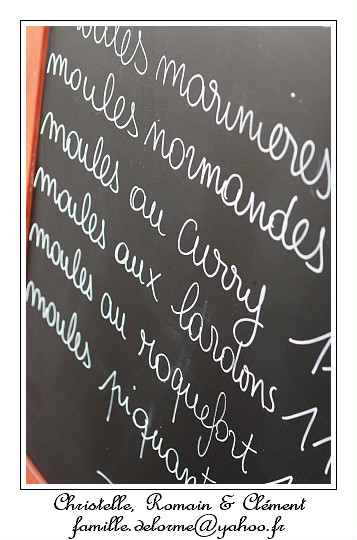 moules marinieres
moules normandes
moules au curry
moules aux lardons
moules au roquefort
moules piquant
Christelle, Romain & Clément
famille.delorme@yahoo.fr